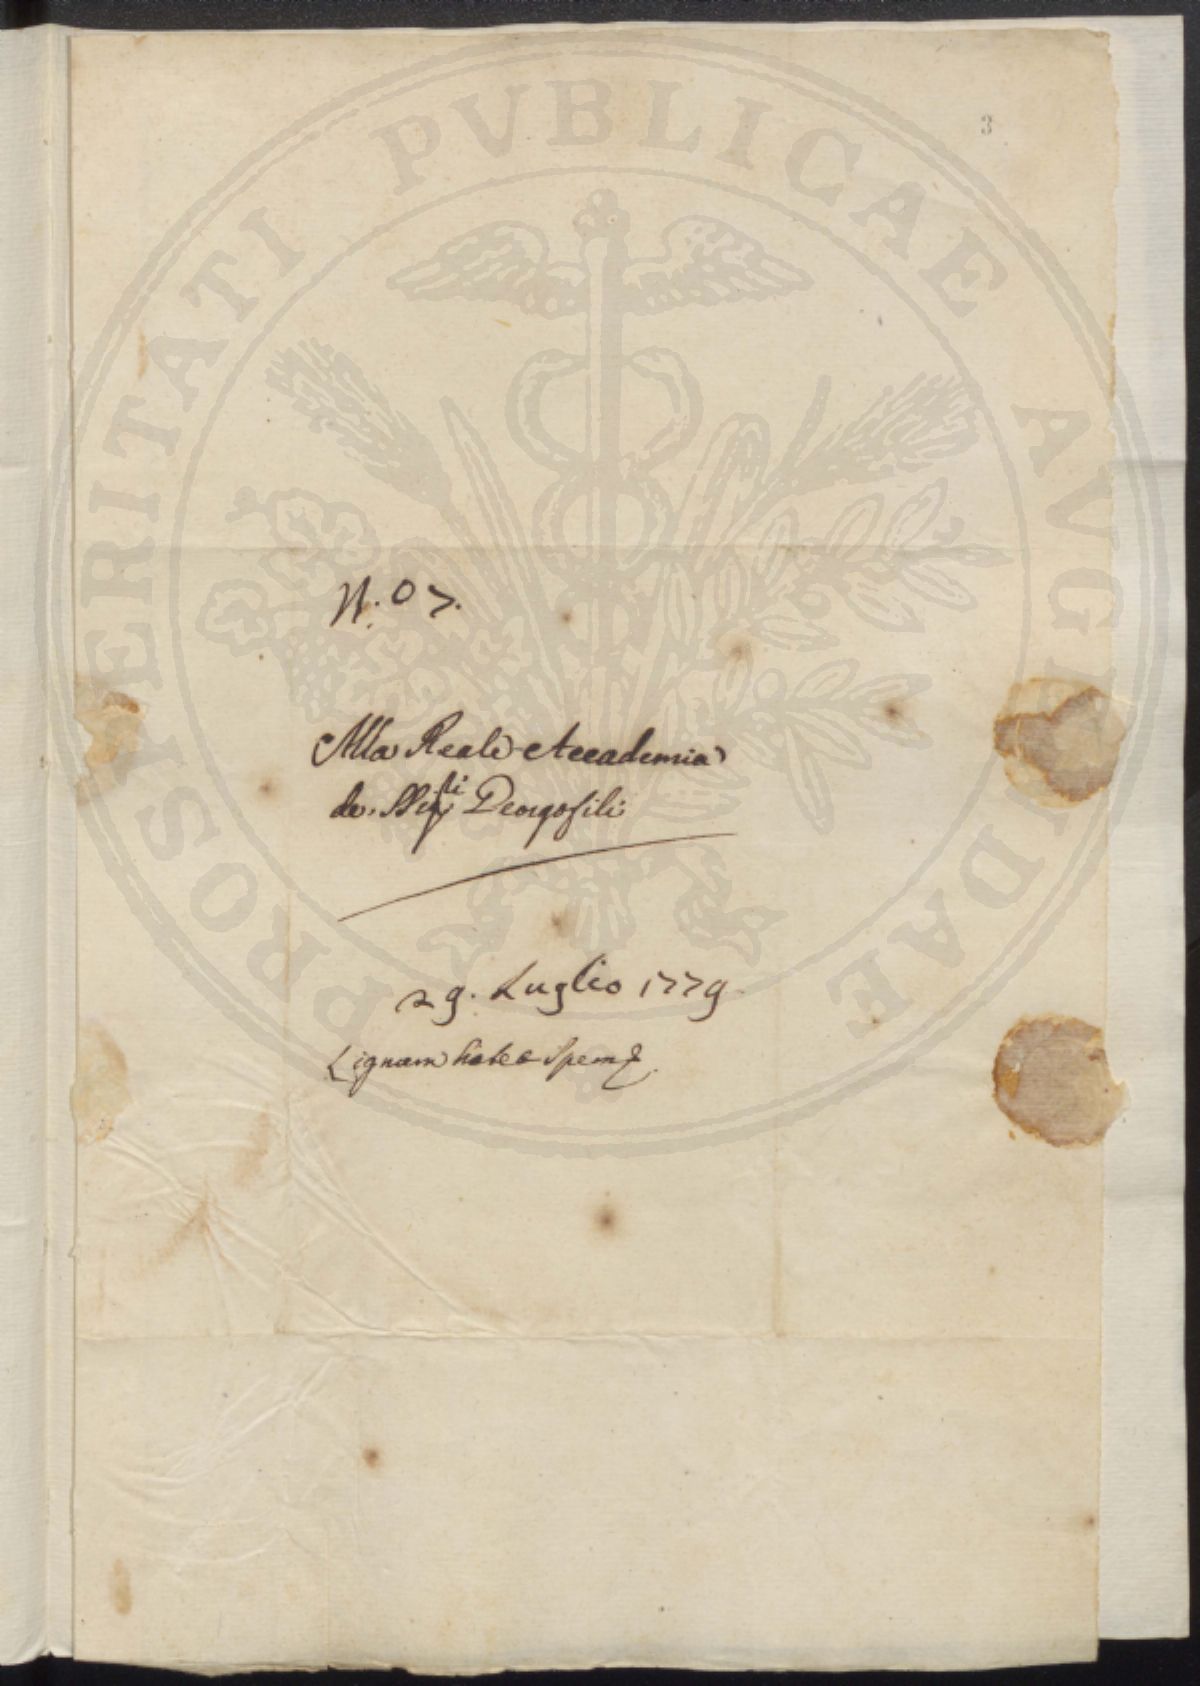 3
PROSPERITATI PVBLICAE AVGENDAE
N. 07.
Alla Reale Accademia
de. Georgofili
29. Luglio 1779
habeo Spem